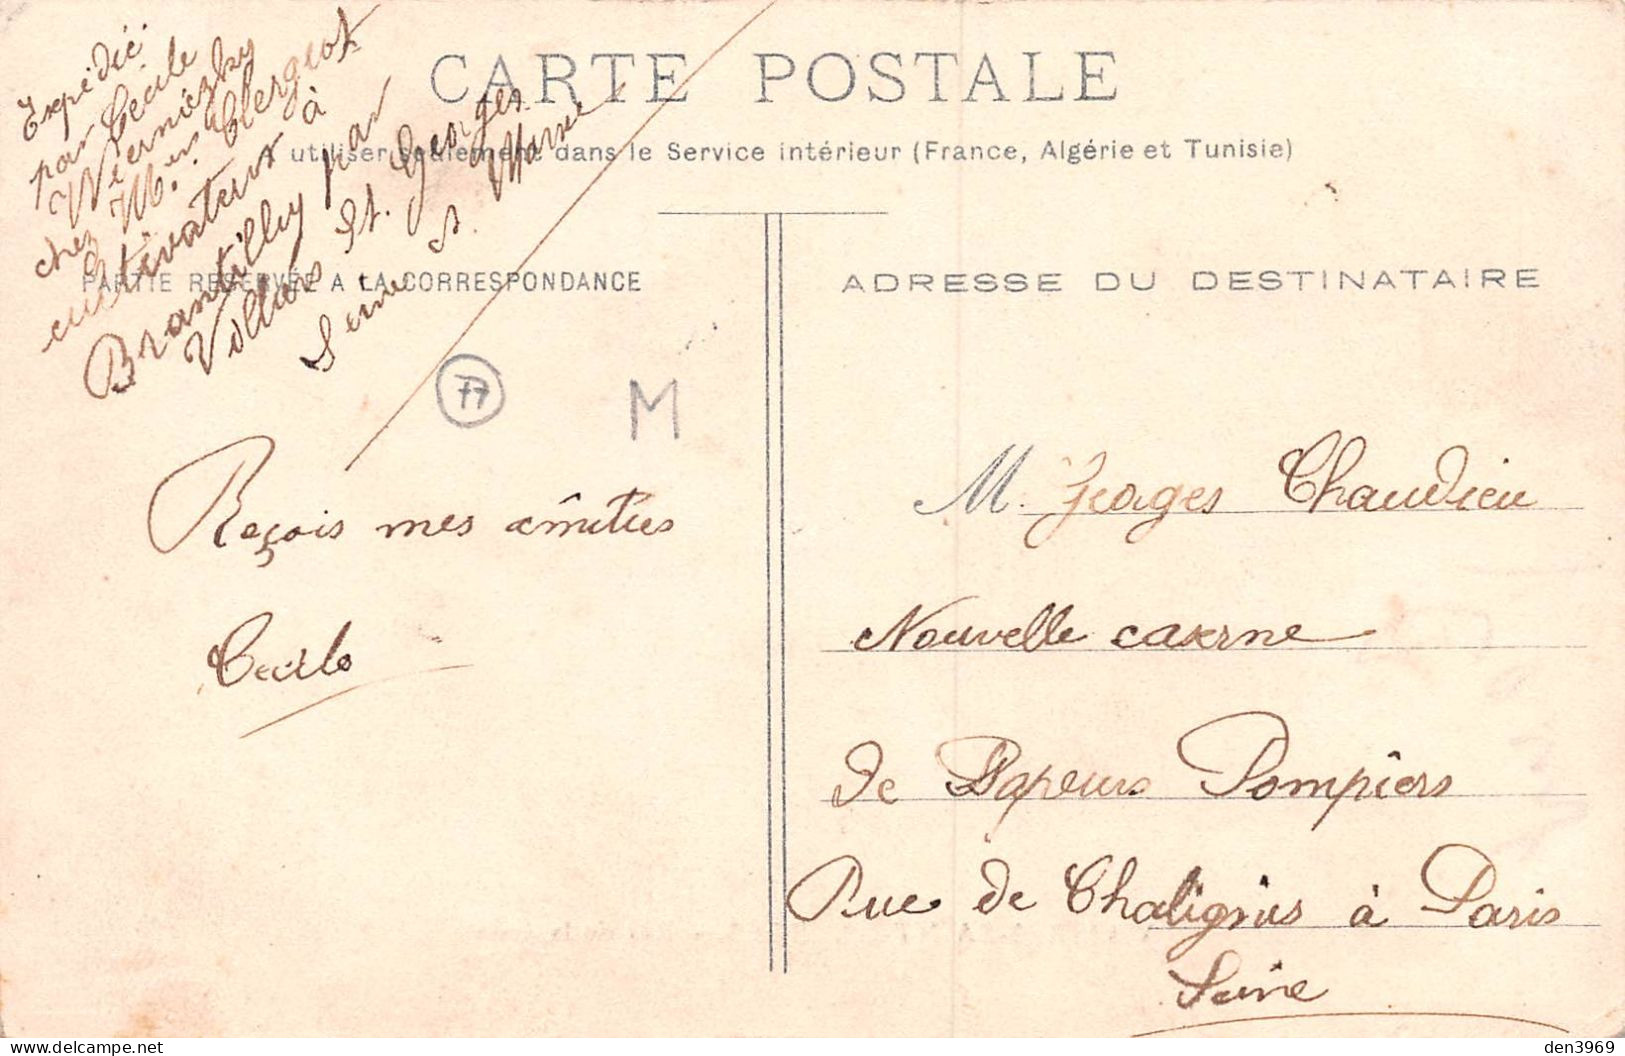 CARTE POSTALE
A utiliser seulement dans le Service intérieur (France, Algérie et Tunisie)
Expédié
par Cécile
chez Mr Clergiot
cultivateur à
Brantilly par
Villars St. Georges
Seine & Marne
PARTIE RÉSERVÉE A LA CORRESPONDANCE
77
M
Reçois mes amitiés
ADRESSE DU DESTINATAIRE
M. Georges Chaudieu
Nouvelle caserne
de Sapeurs Pompiers
Rue de Chalignis à Paris
Seine
den3969